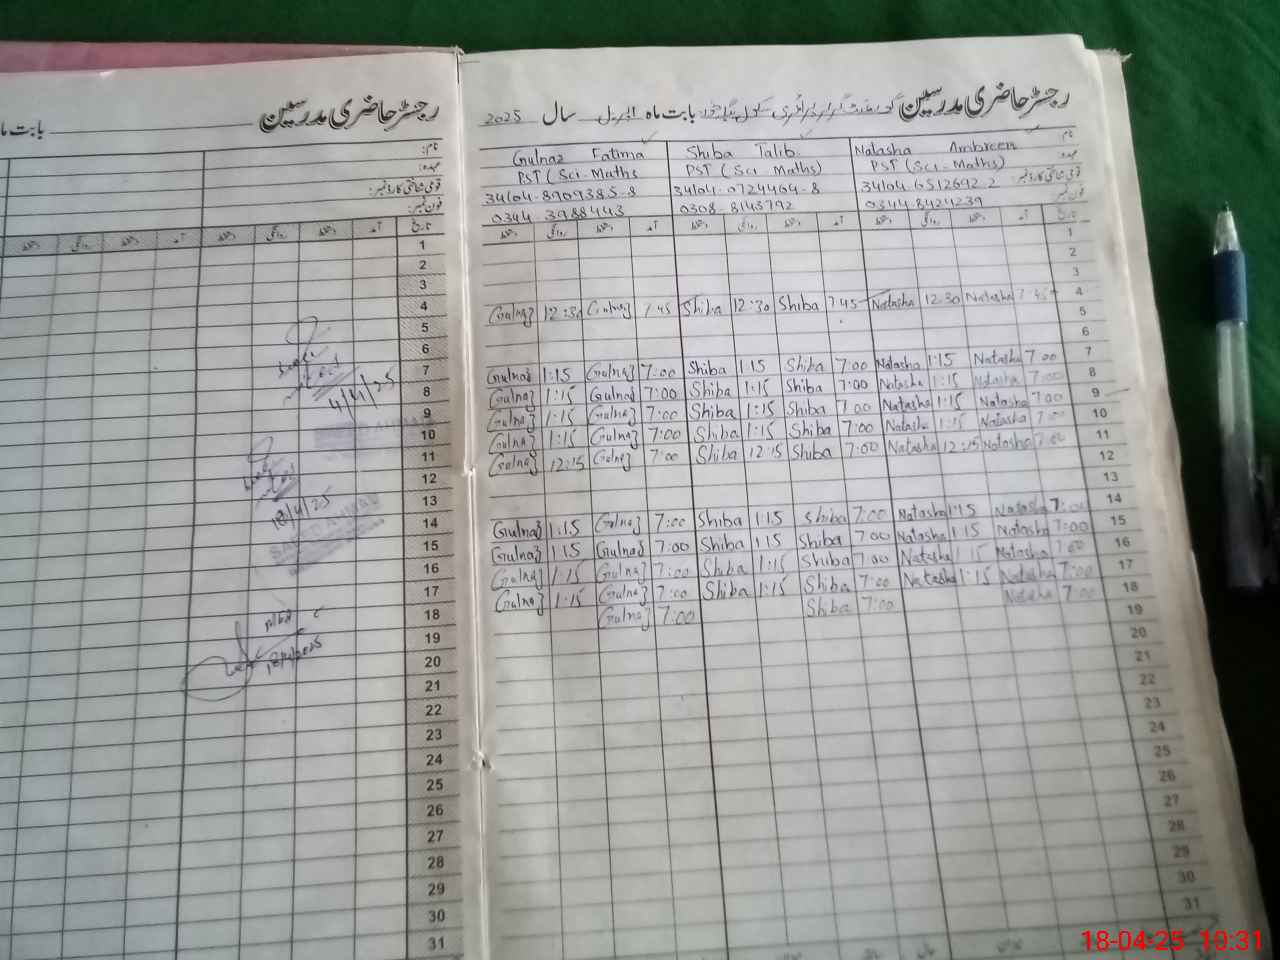 رجسٹر حاضری مدرسین
بابت ماہ
نام:
عہدہ:
قومی شناختی کارڈ نمبر:
فون نمبر:
دستخط روانگی دستخط آمد دستخط روانگی دستخط آمد تاریخ
1
2
3
4
5
6
7
8
9
10
11
12
13
14
15
16
17
18
19
20
21
22
23
24
25
26
27
28
29
30
31
4/4/25
18/4/25
18/4/2025
رجسٹر حاضری مدرسین گورنمنٹ گرلز پرائمری سکول بابت ماہ اپریل سال 2025
نام: Natasha Ambreen Shiba Talib Gulnaz Fatima
عہدہ: PST (Sci-Maths) PST (Sci Maths) PST (Sci-Maths
قومی شناختی کارڈ نمبر: 34104-6512692-2 34104-0724464-8 34104-8909385-8
فون نمبر: 0344-8424239 0308-8143792 0344-3988443
دستخط روانگی دستخط آمد دستخط روانگی دستخط آمد دستخط روانگی دستخط آمد تاریخ
1
2
3
Gulnaz 12:30 Gulnaz 7:45 Shiba 12:30 Shiba 7:45 Natasha 12:30 Natasha 7:45 4
5
6
Gulnaz 1:15 Gulnaz 7:00 Shiba 1:15 Shiba 7:00 Natasha 1:15 Natasha 7:00 7
Gulnaz 1:15 Gulnaz 7:00 Shiba 1:15 Shiba 7:00 Natasha 1:15 Natasha 7:00 8
Gulnaz 1:15 Gulnaz 7:00 Shiba 1:15 Shiba 7:00 Natasha 1:15 Natasha 7:00 9
Gulnaz 1:15 Gulnaz 7:00 Shiba 1:15 Shiba 7:00 Natasha 1:15 Natasha 7:00 10
Gulnaz 12:15 Gulnaz 7:00 Shiba 12:15 Shiba 7:00 Natasha 12:15 Natasha 7:00 11
12
13
Gulnaz 1:15 Gulnaz 7:00 Shiba 1:15 Shiba 7:00 Natasha 1:15 Natasha 7:00 14
Gulnaz 1:15 Gulnaz 7:00 Shiba 1:15 Shiba 7:00 Natasha 1:15 Natasha 7:00 15
Gulnaz 1:15 Gulnaz 7:00 Shiba 1:15 Shiba 7:00 Natasha 1:15 Natasha 7:00 16
Gulnaz 1:15 Gulnaz 7:00 Shiba 1:15 Shiba 7:00 Natasha 1:15 Natasha 7:00 17
Gulnaz 7:00 Shiba 7:00 Natasha 7:00 18
19
20
21
22
23
24
25
26
27
28
29
30
31
18-04-25 10:31